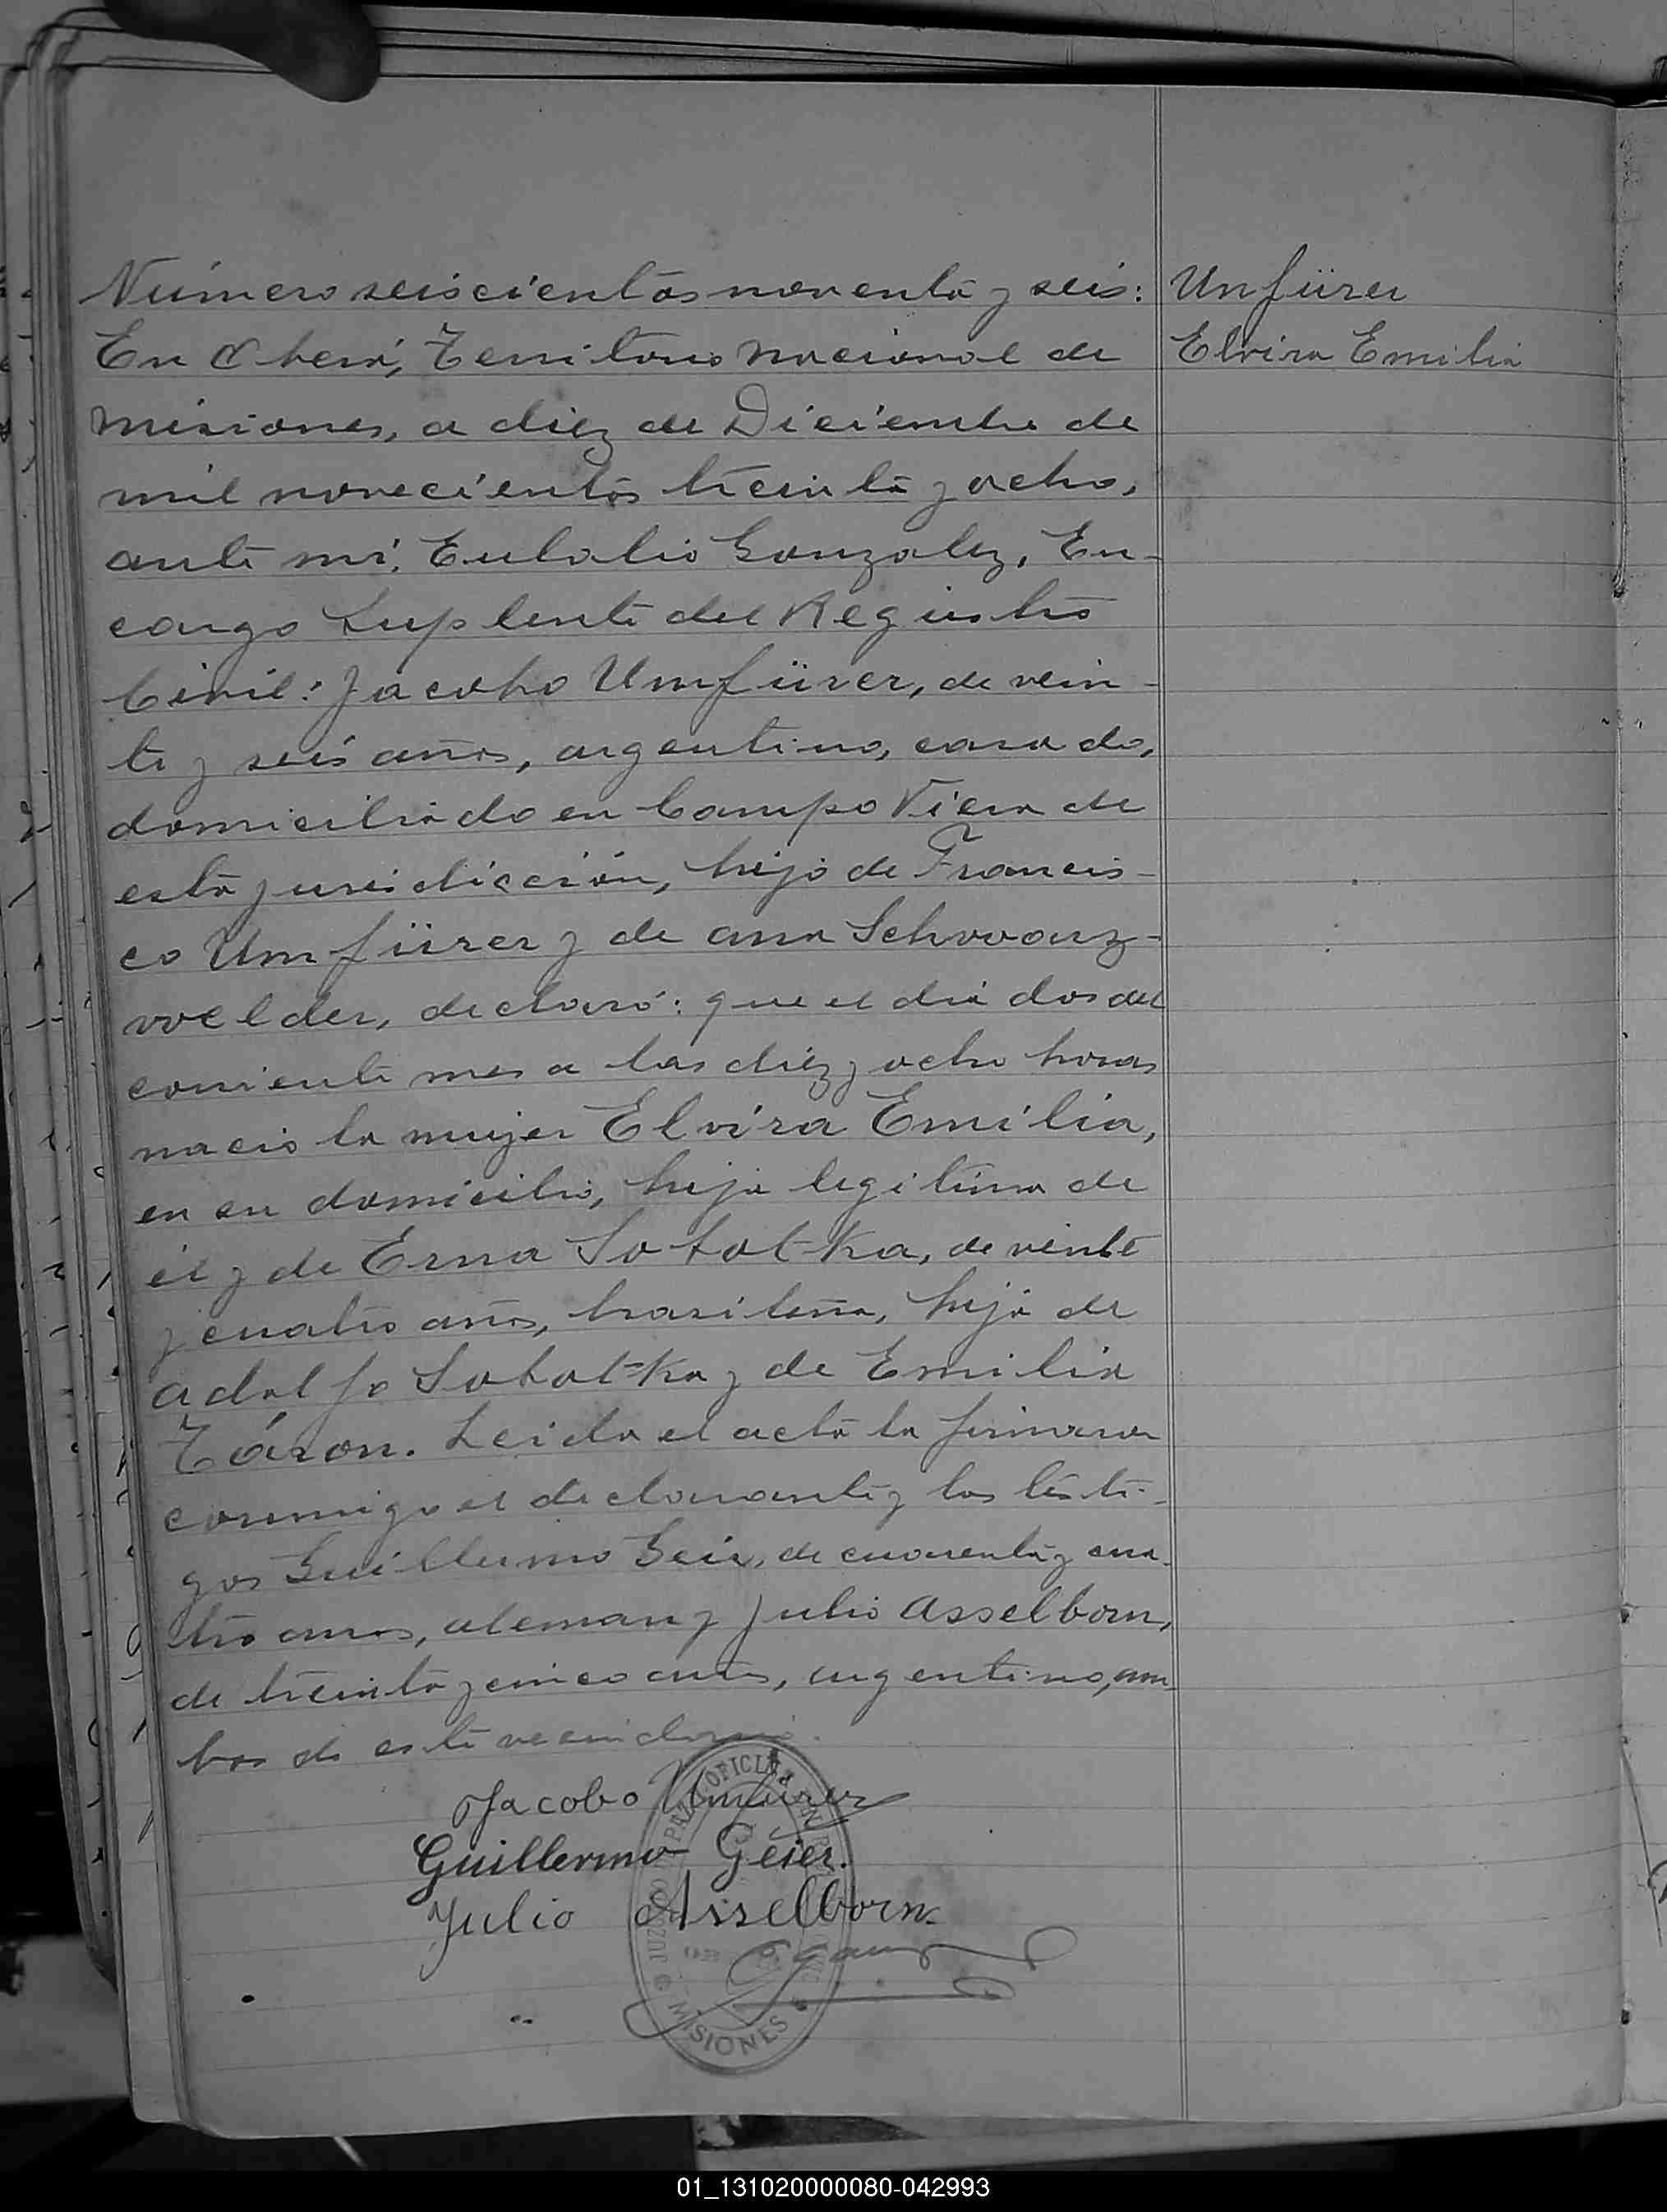 Número seiscientos noventa y seis:
Unfürer
En Oberá, Territorio Nacional de
Elvira Emilia
Misiones, a diez de Diciembre de
mil novecientos treinta y ocho,
ante mi, Eulalio Gonzalez, En-
cargo Suplente del Registro
Civil: Jacobo Umfürer, de vein-
te y seis años, argentino, casado,
domiciliado en Campo Viera de
esta jurisdicción, hijo de Francis-
co Umfürer y de Ana Schwarz-
welder, declaró: que el dia dos del
corriente mes a las diez y ocho horas
nació la mujer Elvira Emilia,
en su domicilio, hija legitima de
él y de Erna Sobotka, de veinte
y cuatro años, brasileña, hija de
Adolfo Sobotka y de Emilia
. Leida el acta la firmaron
conmigo el declarante y los testi-
gos Guillermo Geier, de cuarenta y cua-
tro años, aleman y Julio Asselborn,
de treinta y cinco años, argentino, am-
bos de este vecindario.
Jacobo Umfürer
Guillermo Geier.
Julio Asselborn.
MISIONES
01_131020000080-042993